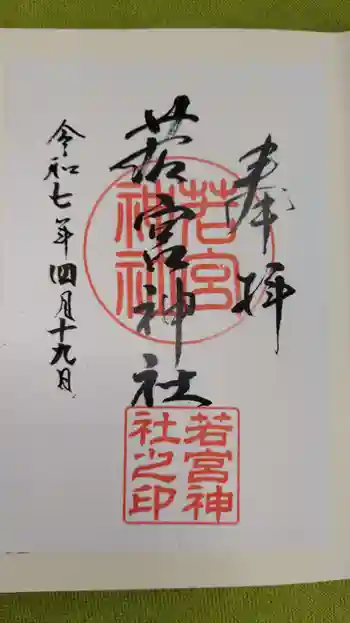 奉拝
若宮神社
若宮
神社
若宮神
社之印
令和七年四月十九日